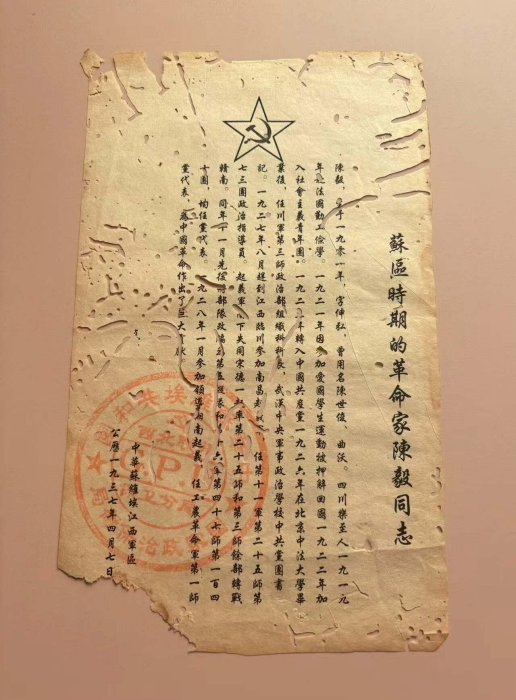 蘇區時期的革命家陳毅同志
陳毅，生于一九零一年，字仲弘，曾用名陳世俊、曲沃。四川樂至人一九一九
年赴法國勤工儉學。一九二一年因參加愛國學生運動被押解回國一九二二年加
入社會主義青年團。一九二三年轉入中國共産黨一九二六年在北京中法大學畢
業後，任川軍第三師政治部組織科科長、武漢中央軍事政治學校中共黨團書
記。一九二七年八月趕到江西臨川參加南昌起義，任第十一軍第二十五師第
七三團政治指導員。起義軍 下失周宗德 紅軍第二十五師和第三師餘部轉戰
贛南。同年十一月先後 部隊改編 第五 六軍第四十七師第一百四
十團 均任黨代表。一九二八年一月參加領導湘南起義，任工農革命軍第一師
黨代表，爲中國革命作出了巨大貢獻。
中華蘇維埃江西軍區
公歷一九三七年四月七日
G.P.U